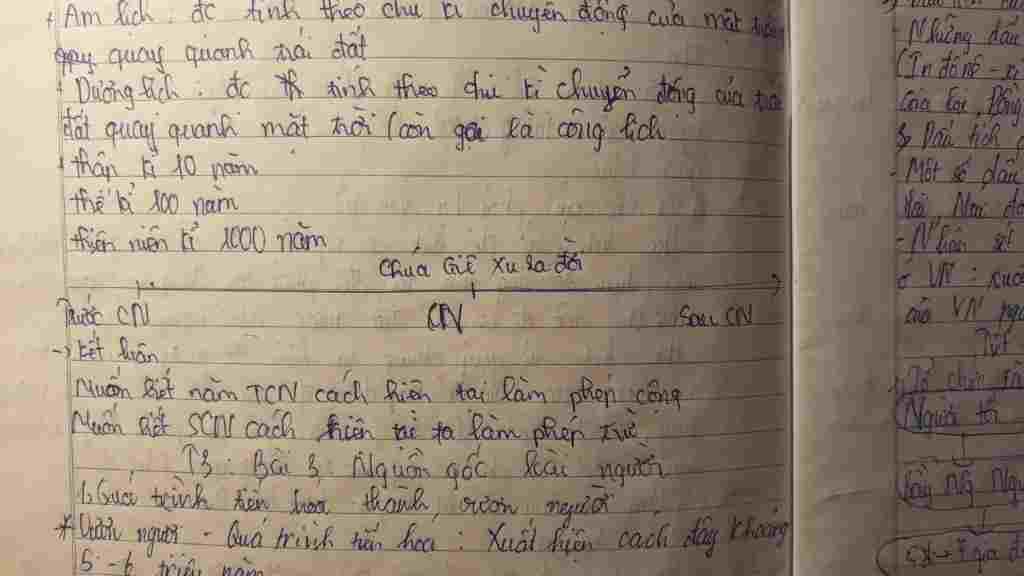 + Âm lịch : đc tính theo chu kì chuyển động của mặt trăng
quay quanh trái đất
+ Dương lịch : đc tính theo chu kì chuyển động của trái
đất quay quanh mặt trời (còn gọi là công lịch
+ thập kỉ 10 năm
thế kỉ 100 năm
thiên niên kỉ 1000 năm
Chúa Giê Xu ra đời
Trước CN CN Sau CN
-> Kết luận
Muốn biết năm TCN cách hiện tại làm phép cộng
Muốn biết SCN cách hiện tại ta làm phép trừ
T3 : Bài 3 : Nguồn gốc loài người
1. Quá trình tiến hoá thành vượn người
* Vượn người - Quá trình tiến hoá : Xuất hiện cách đây khoảng
5 - 6 triệu năm
- Những dấu
(In đô nê - xi
3 Dấu tích
- Một số dấu
- Nhân
ở VN :
của VN
Người tối